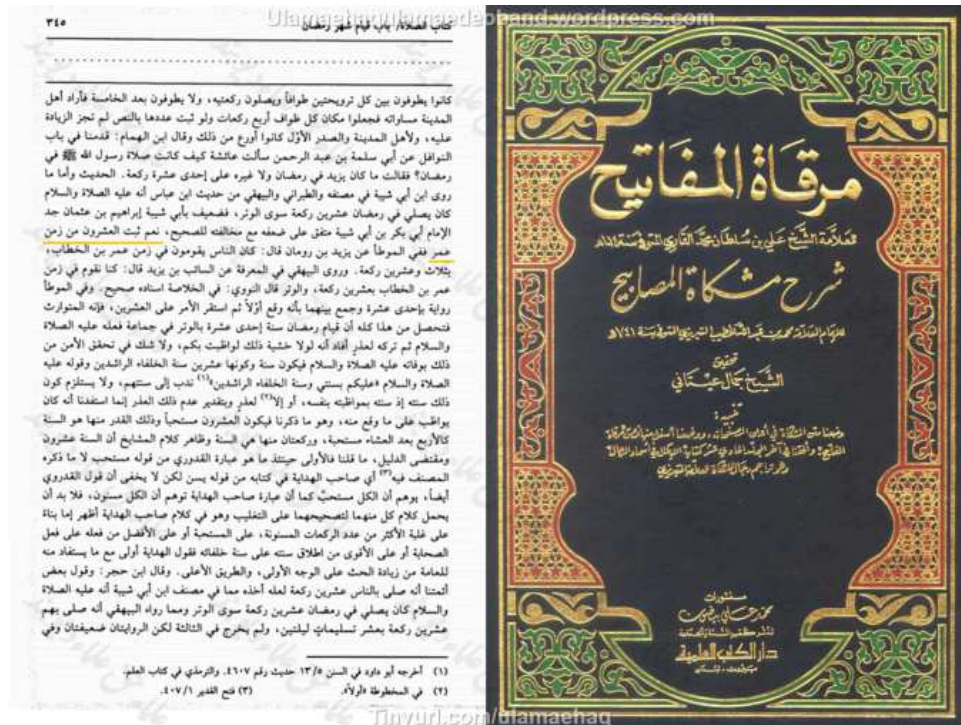 Ulamaehaqulamaedeoband.wordpress.com
كتاب الصلاة/ باب قيام شهر رمضان
٣٤٥
كانوا يطوفون بين كل ترويحتين طوافاً ويصلون ركعتيه، ولا يطوفون بعد الخامسة فأراد أهل
المدينة مساواته فجعلوا مكان كل طواف أربع ركعات ولو ثبت عددها بالنص لم نجز الزيادة
عليه، ولأهل المدينة والصدر الأوّل كانوا أورع من ذلك وقال ابن الهمام: قدمنا في باب
النوافل عن أبي سلمة بن عبد الرحمن سألت عائشة كيف كانت صلاة رسول الله ﷺ في
رمضان؟ فقالت ما كان يزيد في رمضان ولا غيره على إحدى عشرة ركعة. الحديث وأما ما
روى ابن أبي شيبة في مصنفه والطبراني والبيهقي من حديث ابن عباس أنه عليه الصلاة والسلام
كان يصلي في رمضان عشرين ركعة سوى الوتر، فضعيف بأبي شيبة إبراهيم بن عثمان جد
الإمام أبي بكر بن أبي شيبة متفق على ضعفه مع مخالفته للصحيح، نعم ثبت العشرون من زمن
عمر ففي الموطأ عن يزيد بن رومان قال: كان الناس يقومون في زمن عمر بن الخطاب،
بثلاث وعشرين ركعة. وروى البيهقي في المعرفة عن السائب بن يزيد قال: كنا نقوم في زمن
عمر بن الخطاب بعشرين ركعة، والوتر قال النووي: في الخلاصة اسناده صحيح. وفي الموطأ
رواية بإحدى عشرة وجمع بينهما بأنه وقع أوّلاً ثم استقر الأمر على العشرين، فإنه المتوارث
فتحصل من هذا كله أن قيام رمضان سنة إحدى عشرة بالوتر في جماعة فعله عليه الصلاة
والسلام ثم تركه لعذر أفاد أنه لولا خشية ذلك لواظبت بكم، ولا شك في تحقق الأمن من
ذلك بوفاته عليه الصلاة والسلام فيكون سنة وكونها عشرين سنة الخلفاء الراشدين وقوله عليه
الصلاة والسلام «عليكم بسنتي وسنة الخلفاء الراشدين»(١) ندب إلى سنتهم، ولا يستلزم كون
ذلك سنته إذ سنته بمواظبته بنفسه، أو إلا(٢) لعذر وبتقدير عدم ذلك العذر إنما استفدنا أنه كان
يواظب على ما وقع منه، وهو ما ذكرنا فيكون العشرون مستحباً وذلك القدر منها هو السنة
كالأربع بعد العشاء مستحبة، وركعتان منها هي السنة وظاهر كلام المشايخ أن السنة عشرون
ومقتضى الدليل، ما قلنا فالأولى حينئذ ما هو عبارة القدوري من قوله مستحب لا ما ذكره
المصنف فيه(٣) أي صاحب الهداية في كتابه من قوله يسن لكن لا يخفى أن قول القدروي
أيضاً، يوهم أن الكل مستحبّ كما أن عبارة صاحب الهداية توهم أن الكل مسنون، فلا بد أن
يحمل كلام كل منهما لتصحيحهما على التغليب وهو في كلام صاحب الهداية أظهر إما بناءً
على غلبة الأكثر من عدد الركعات المسنونة، على المستحبة أو على الأفضل من فعله على فعل
الصحابة أو على الأقوى من اطلاق سنته على سنة خلفائه فقول الهداية أولى مع ما يستفاد منه
للعامة من زيادة الحث على الوجه الأولى، والطريق الأعلى. وقال ابن حجر: وقول بعض
أئمتنا أنه صلى بالناس عشرين ركعة لعله أخذه مما في مصنف ابن أبي شيبة أنه عليه الصلاة
والسلام كان يصلي في رمضان عشرين ركعة سوى الوتر ومما رواه البيهقي أنه صلى بهم
عشرين ركعة بعشر تسليمات ليلتين، ولم يخرج في الثالثة لكن الروايتان ضعيفتان وفي
(١) أخرجه أبو داود في السنن ١٣/٥ حديث رقم ٤٦٠٧. والترمذي في كتاب العلم.
(٢) في المخطوطة «أولاً». (٣) فتح القدير ٤٠٧/١.
مرقاة المفاتيح
للعلامة الشيخ علي بن سلطان محمد القاري المتوفى سنة ١٠١٤هـ
شرح مشكاة المصابيح
للإمام العلامة محمد بن عبد الله الخطيب التبريزي المتوفى سنة ٧٤١هـ
تحقيق
الشيخ جمال عيتاني
تنبيه
منشورات
محمد علي بيضون
لنشر كتب السنة والجماعة
دار الكتب العلمية
بيروت - لبنان
Tinyurl.com/ulamaehaq